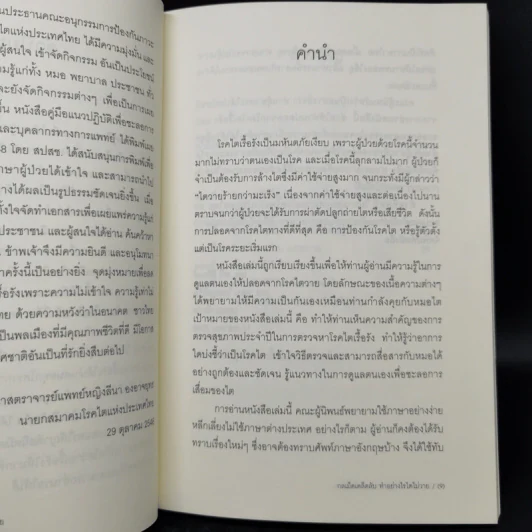 นประธานคณะอนุกรรมการป้องกันภาวะ
ตแห่งประเทศไทย ได้มีความมุ่งมั่น และ
ผู้สนใจ เข้าจัดกิจกรรม อันเป็นประโยชน์
ามรู้แก่ทั้ง หมอ พยาบาล ประชาชน ตัว
จะยังจัดกิจกรรมต่างๆ เพื่อเป็นการเผย
ขึ้น หนังสือคู่มือแนวปฏิบัติเพื่อชะลอการ
และบุคลากรทางการแพทย์ ได้พิมพ์เผย
8 โดย สปสช. ได้สนับสนุนการพิมพ์เพื่อ
าษาผู้ป่วยได้เข้าใจ และสามารถนำไป
างได้ผลเป็นรูปธรรมชัดเจนยิ่งขึ้น เมื่อ
ทั้งใจจัดทำเอกสารเพื่อเผยแพร่ความรู้แก่
ประชาชน สำหรับผู้สนใจได้อ่าน ค้นคว้าหา
ข้าพเจ้าจึงมีความยินดี และอนุโมทนา
าครั้งนี้เป็นอย่างยิ่ง จุดมุ่งหมายเพื่อลด
รื้อรังเพราะความไม่เข้าใจ ความรู้เท่าไม่
ไทย ด้วยความหวังว่าในอนาคต ชาวไทย
เป็นพลเมืองที่มีคุณภาพชีวิตที่ดี มีโอกาส
ศชาติอันเป็นที่รักยิ่งสืบต่อไป
าสตราจารย์แพทย์หญิงลีนา องอาจยุทธ
นายกสมาคมโรคไตแห่งประเทศไทย
29 ตุลาคม 2548
คำนำ
โรคไตเรื้อรังเป็นมหันตภัยเงียบ เพราะผู้ป่วยด้วยโรคนี้จำนวน
มากไม่ทราบว่าตนเองเป็นโรค และเมื่อโรคนี้ลุกลามไปมาก ผู้ป่วยก็
จำเป็นต้องรับการล้างไตซึ่งมีค่าใช้จ่ายสูง จนกระทั่งมีผู้กล่าวว่า
"ไตวายร้ายกว่ามะเร็ง" เนื่องจากค่าใช้จ่ายสูงและต่อเนื่องไปนาน
ตราบจนกว่าผู้ป่วยจะได้รับการผ่าตัดปลูกถ่ายไตหรือเสียชีวิต ดังนั้น
การปลอดจากโรคไตทางที่ดีที่สุด คือ การป้องกันโรคไต หรือรู้ตัวตั้ง
แต่เป็นโรคระยะเริ่มแรก
หนังสือเล่มนี้ถูกเรียบเรียงขึ้นเพื่อให้ท่านผู้อ่านมีความรู้ในการ
ดูแลตนเองให้ปลอดภัยจากโรคไตวาย โดยลักษณะของเนื้อความต่างๆ
ได้พยายามให้มีความเป็นกันเองเหมือนท่านกำลังคุยกับหมอโต
เป้าหมายของหนังสือเล่มนี้ คือ ทำให้ท่านเห็นความสำคัญของการ
ตรวจสุขภาพประจำปีในการตรวจหาโรคไตเรื้อรัง ทำให้รู้ว่าอาการ
ใดบ่งชี้ว่าเป็นโรคไต เข้าใจวิธีตรวจและสามารถสื่อสารกับหมอได้
อย่างถูกต้องและชัดเจน รู้แนวทางในการดูแลตนเองเพื่อชะลอการ
เสื่อมของไต
การอ่านหนังสือเล่มนี้ คณะผู้นิพนธ์พยายามใช้ภาษาอย่างง่าย
หลีกเลี่ยงไม่ใช้ภาษาต่างประเทศ อย่างไรก็ตาม ผู้อ่านก็คงต้องได้รับ
ทราบเรื่องใหม่ๆ ซึ่งอาจต้องทราบศัพท์ภาษาอังกฤษบ้าง จึงได้ใช้ทับ
กลเม็ดเคล็ดลับ ทำอย่างไรไตไม่วาย /